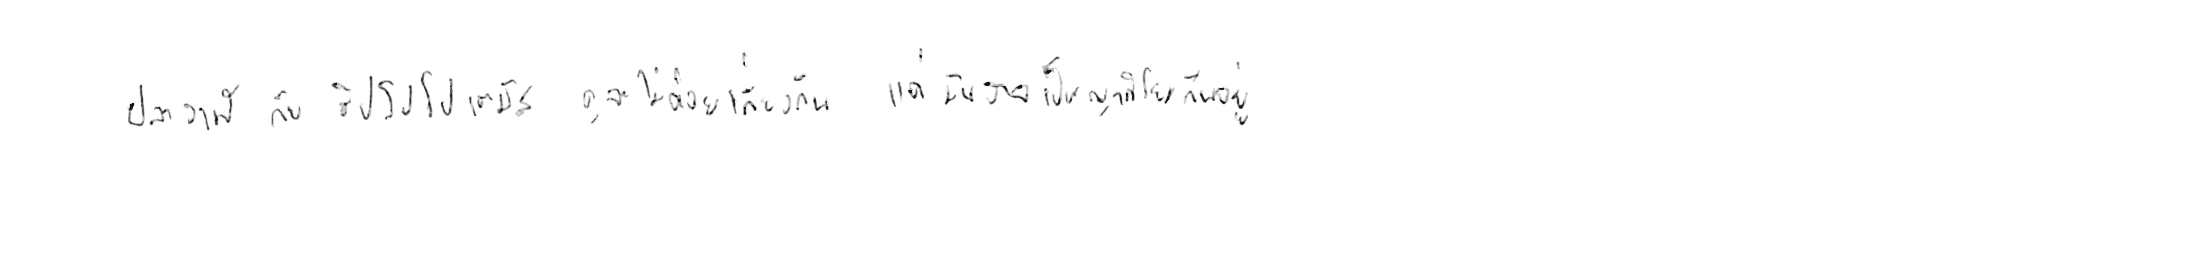 ปลาวาฬ กับ ฮิปโปโปเตมัส ดูจะไม่ค่อยเกี่ยวกัน แต่ มันอาจเป็นญาติโยมกันอยู่